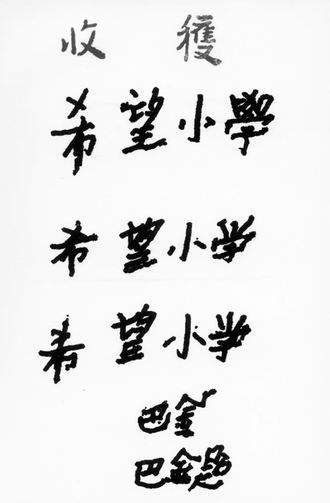 收穫
希望小學
希望小学
希望小学
巴金
巴金题